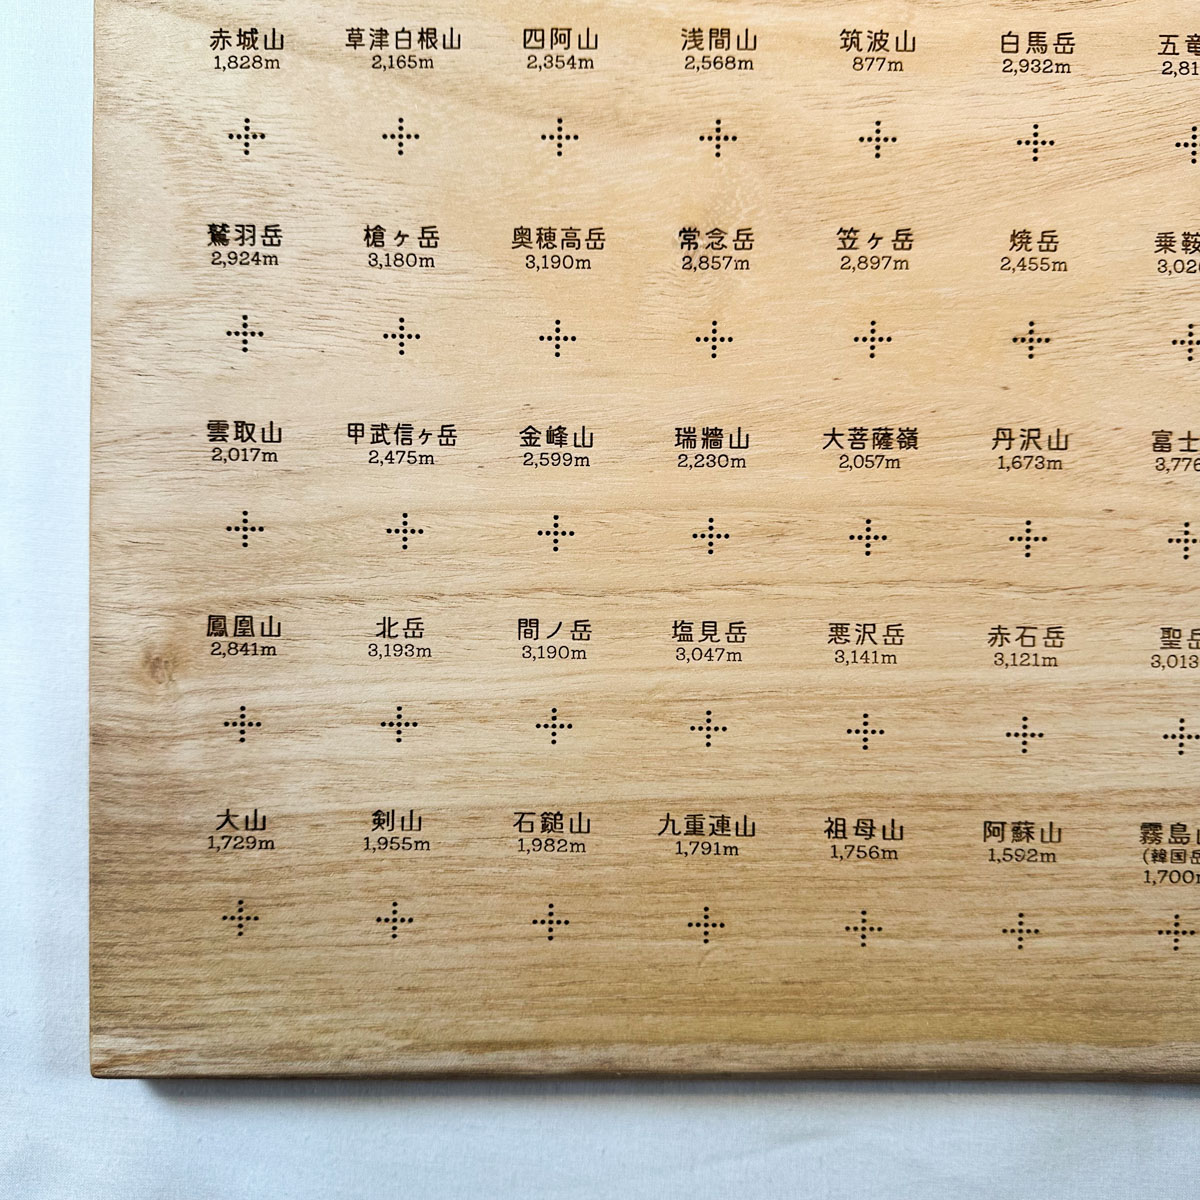 赤城山 草津白根山 四阿山 浅間山 筑波山 白馬岳 五竜
1,828m 2,165m 2,354m 2,568m 877m 2,932m 2,81
鷲羽岳 槍ヶ岳 奥穂高岳 常念岳 笠ヶ岳 焼岳 乗鞍
2,924m 3,180m 3,190m 2,857m 2,897m 2,455m 3,02
雲取山 甲武信ヶ岳 金峰山 瑞牆山 大菩薩嶺 丹沢山 富士
2,017m 2,475m 2,599m 2,230m 2,057m 1,673m 3,776
鳳凰山 北岳 間ノ岳 塩見岳 悪沢岳 赤石岳 聖岳
2,841m 3,193m 3,190m 3,047m 3,141m 3,121m 3,013
大山 剣山 石鎚山 九重連山 祖母山 阿蘇山 霧島山
1,729m 1,955m 1,982m 1,791m 1,756m 1,592m (韓国岳
1,700m